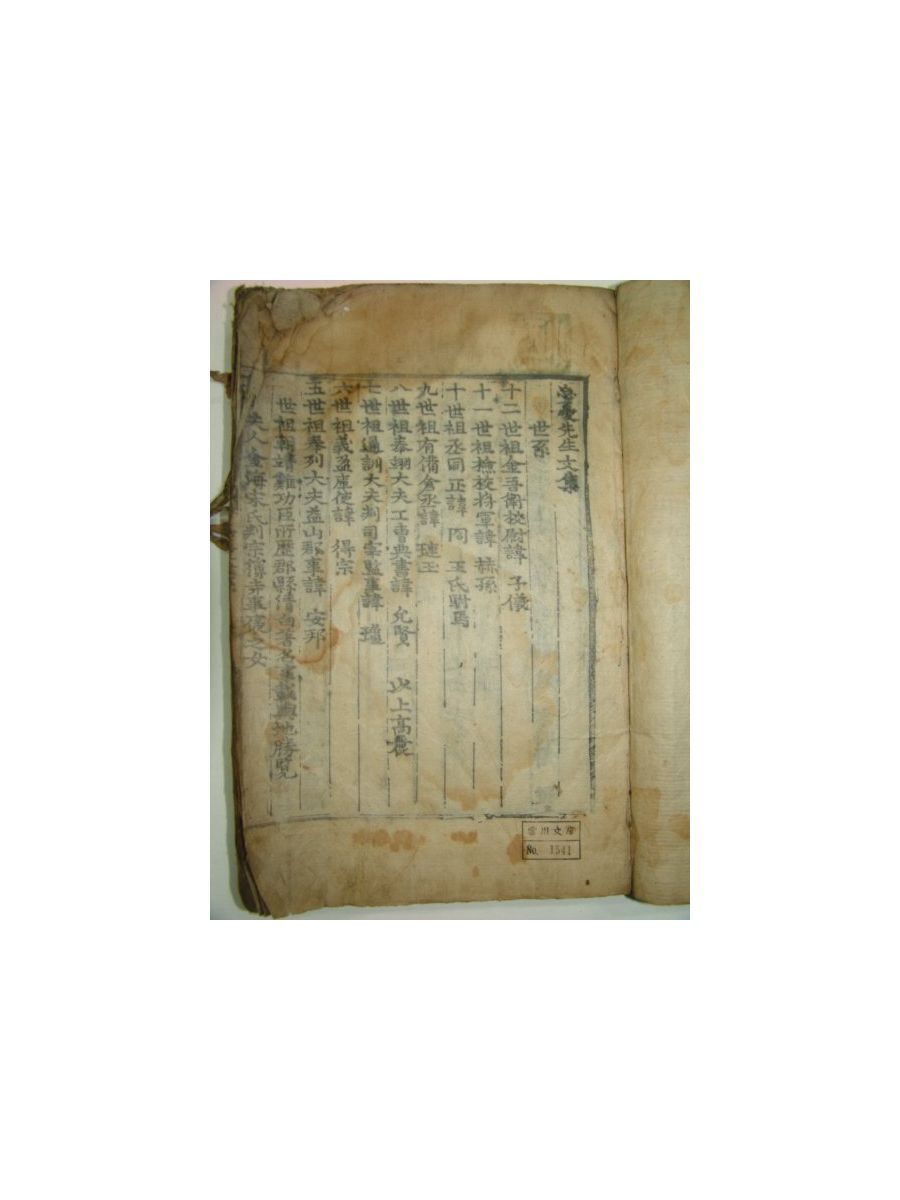 忘憂先生文集
世系
十二世祖金吾衛校尉諱 子儀
十一世祖檢校將軍諱 赫孫
十世祖丞同正諱 冏 王氏駙馬
九世祖有備倉丞諱 璉玉
八世祖奉翊大夫工曹典書諱 允賢 以上高麗
七世祖通訓大夫判司宰監事諱
六世祖義盈庫使諱 得宗
五世祖奉列大夫益山郡事諱 安邦
世祖朝靖難功臣所歷郡縣清白著名事載輿地勝覽
夫人 海宋氏判宗簿寺事 之女
No. 1541